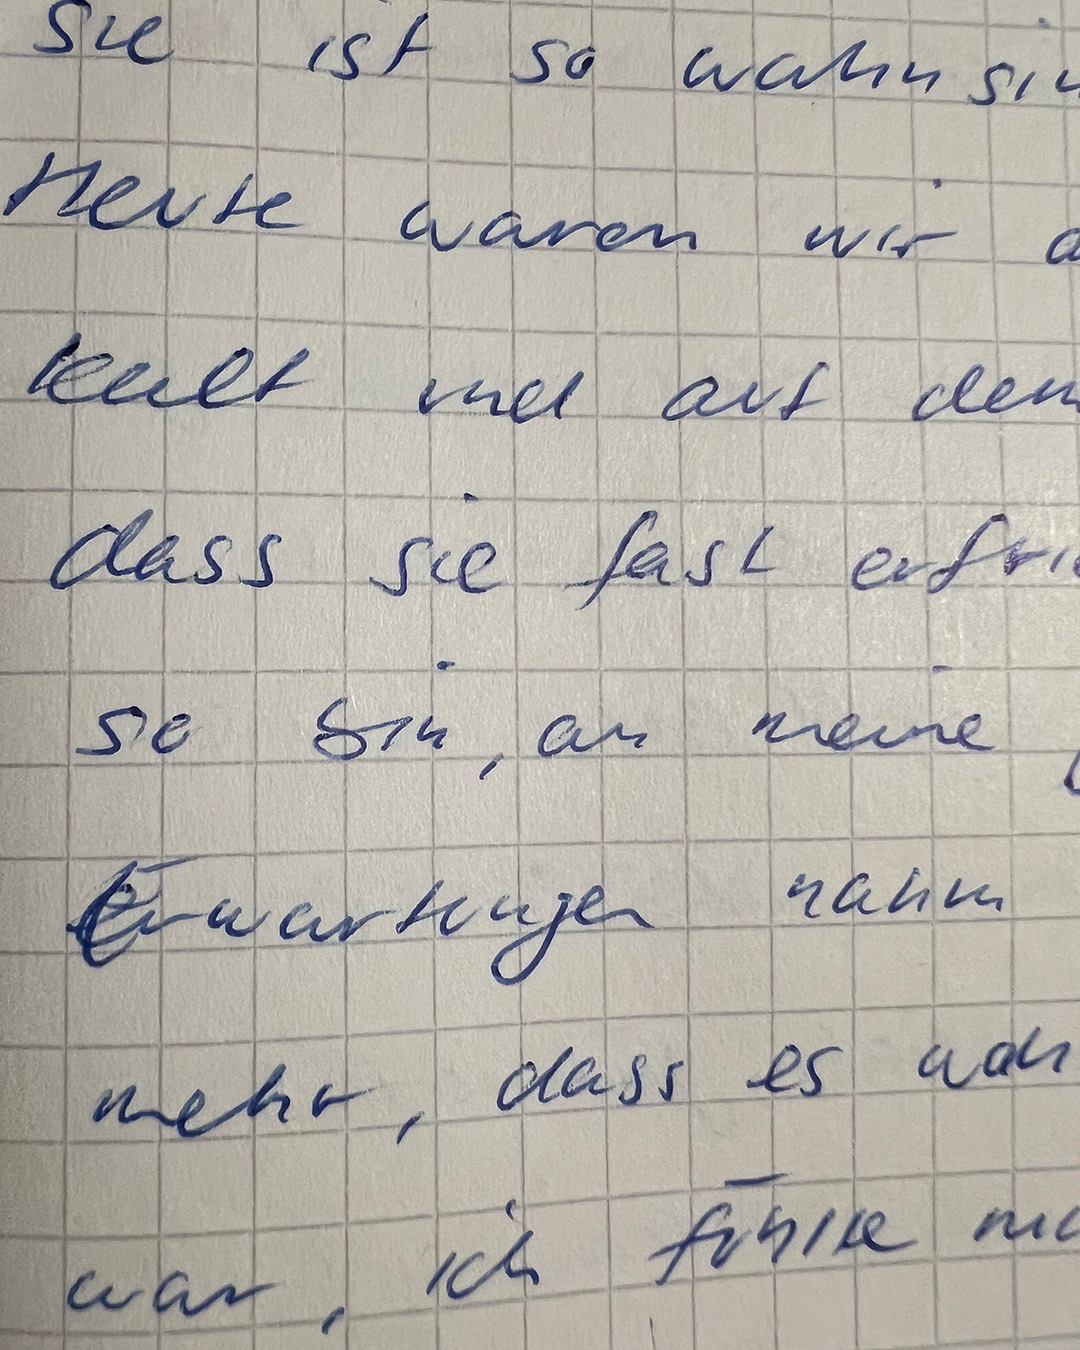 Sie ist so wahnsin
Heute waren wir a
kalt und auf dem
dass sie fast erfrie
so bin, an meine
Erwartungen nahm
mehr, dass es wah
war, ich fühlte mi